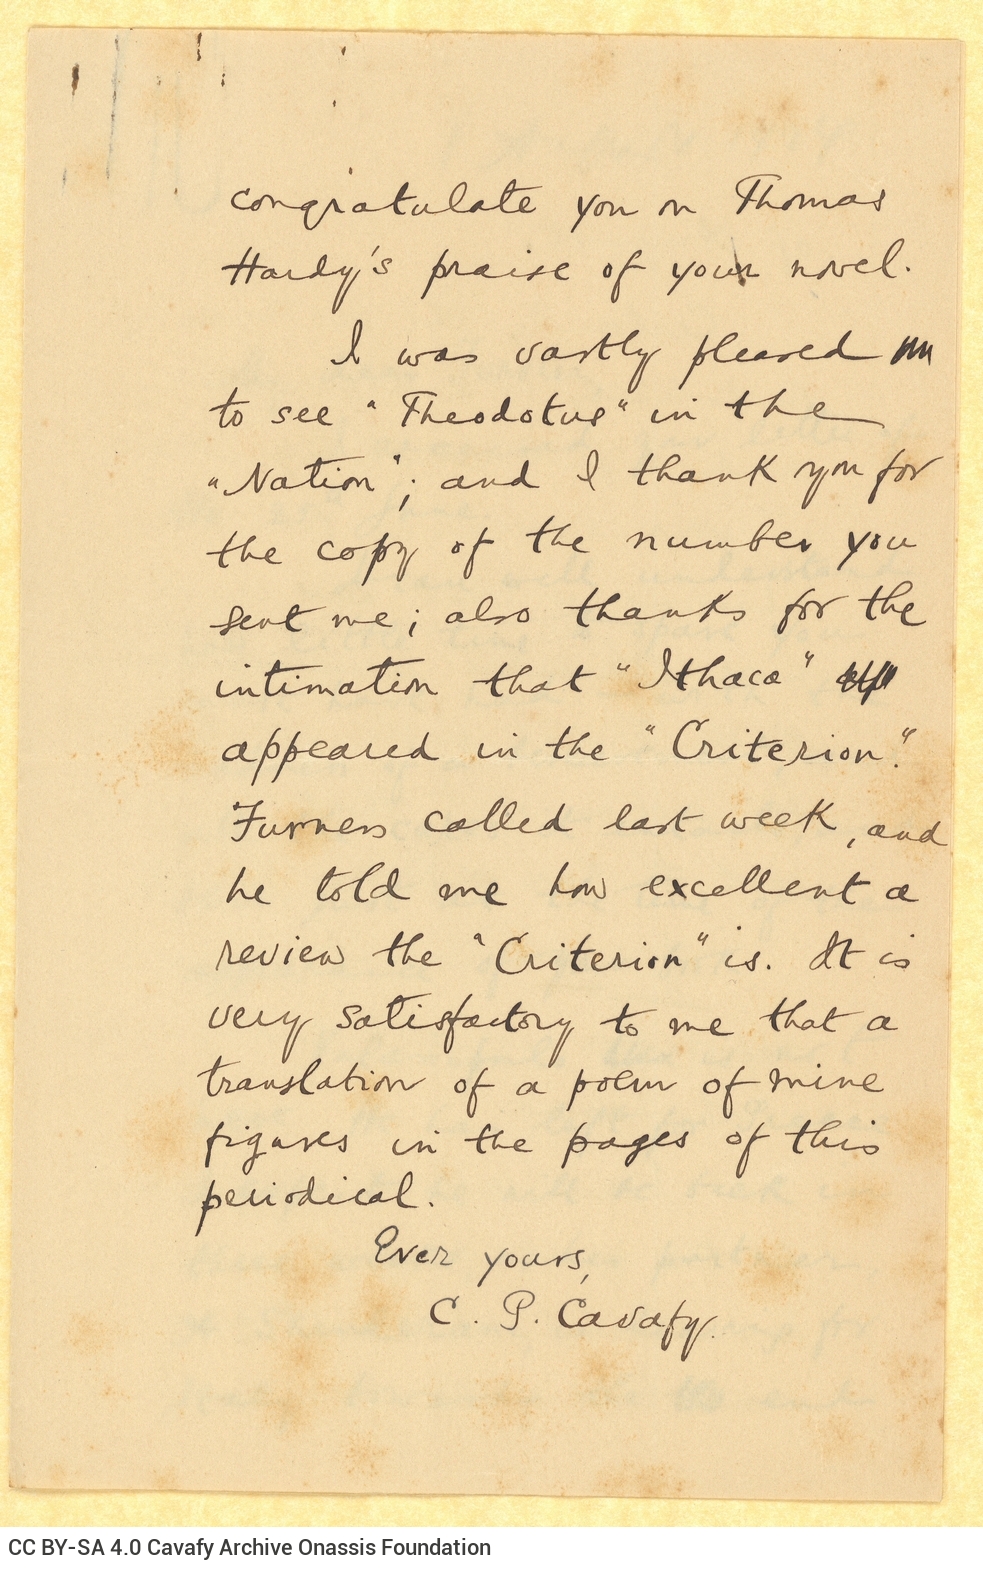 congratulate you on Thomas
Hardy's praise of your novel.
I was vastly pleased
to see "Theodotus" in the
"Nation"; and I thank you for
the copy of the number you
sent me; also thanks for the
intimation that "Ithaca"
appeared in the "Criterion".
Furness called last week, and
he told me how excellent a
review the "Criterion" is. It is
very satisfactory to me that a
translation of a poem of mine
figures in the pages of this
periodical.
Ever yours,
C. P. Cavafy.
CC BY-SA 4.0 Cavafy Archive Onassis Foundation